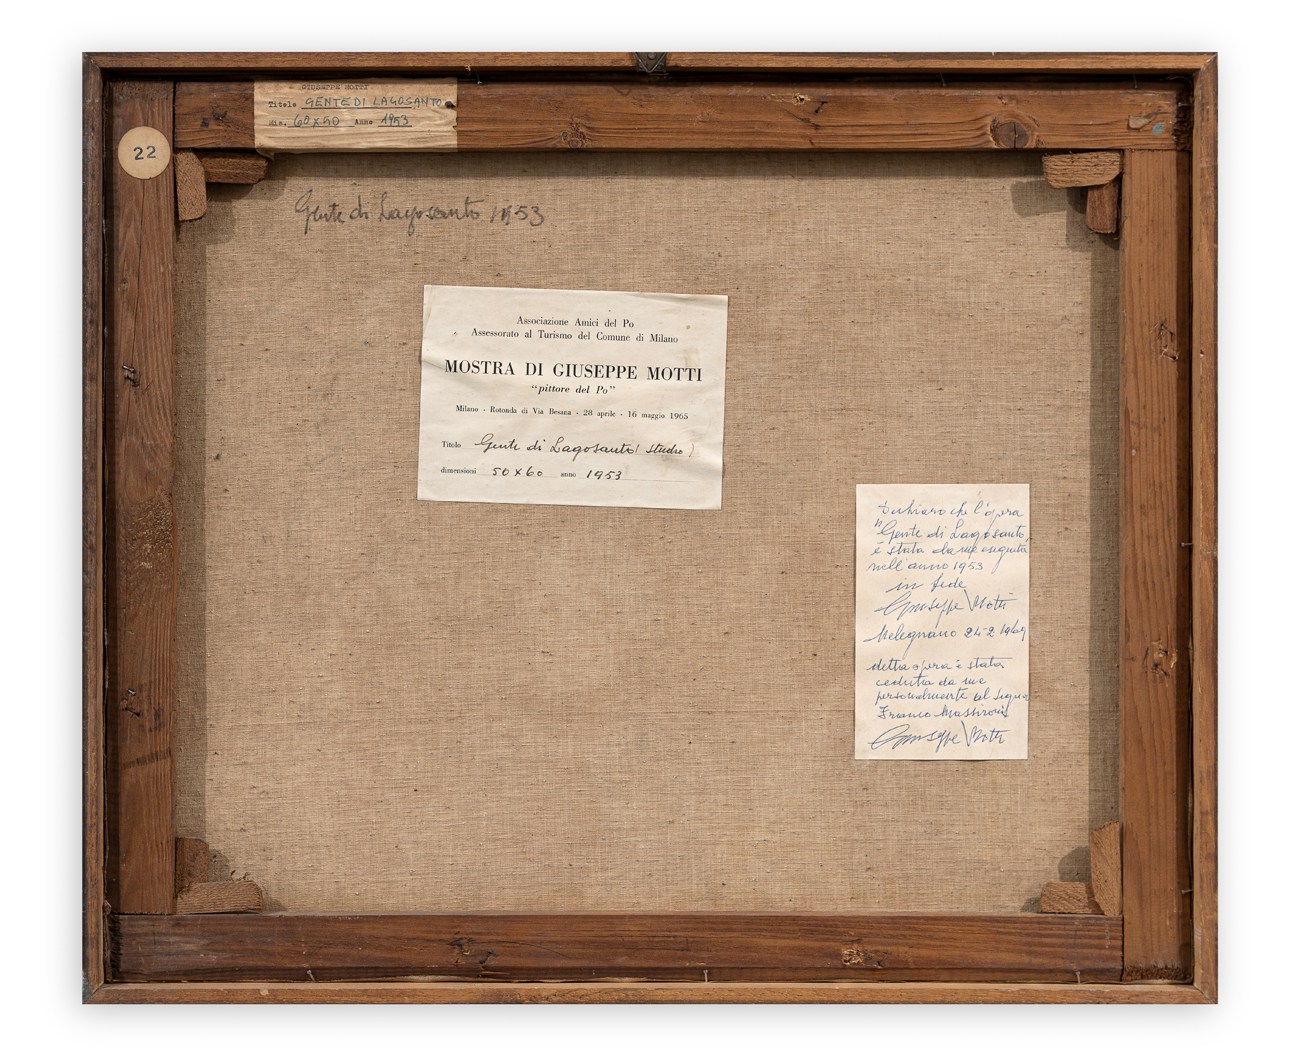 GIUSEPPE MOTTI
Titolo GENTE DI LAGOSANTO
Mis. 60x50 Anno 1953
22
Gente di Lagosanto 1953
Associazione Amici del Po
Assessorato al Turismo del Comune di Milano
MOSTRA DI GIUSEPPE MOTTI
"pittore del Po"
Milano - Rotonda di Via Besana - 28 aprile - 16 maggio 1965
Titolo Gente di Lagosanto (studio)
dimensioni 50x60 anno 1953
Dichiaro che l'opera
"Gente di Lagosanto"
è stata da me eseguita
nell'anno 1953
in fede
Giuseppe Motti
Melegnano 24-2 1969
detta opera è stata
ceduta da me
personalmente al signor
Franco
Giuseppe Motti